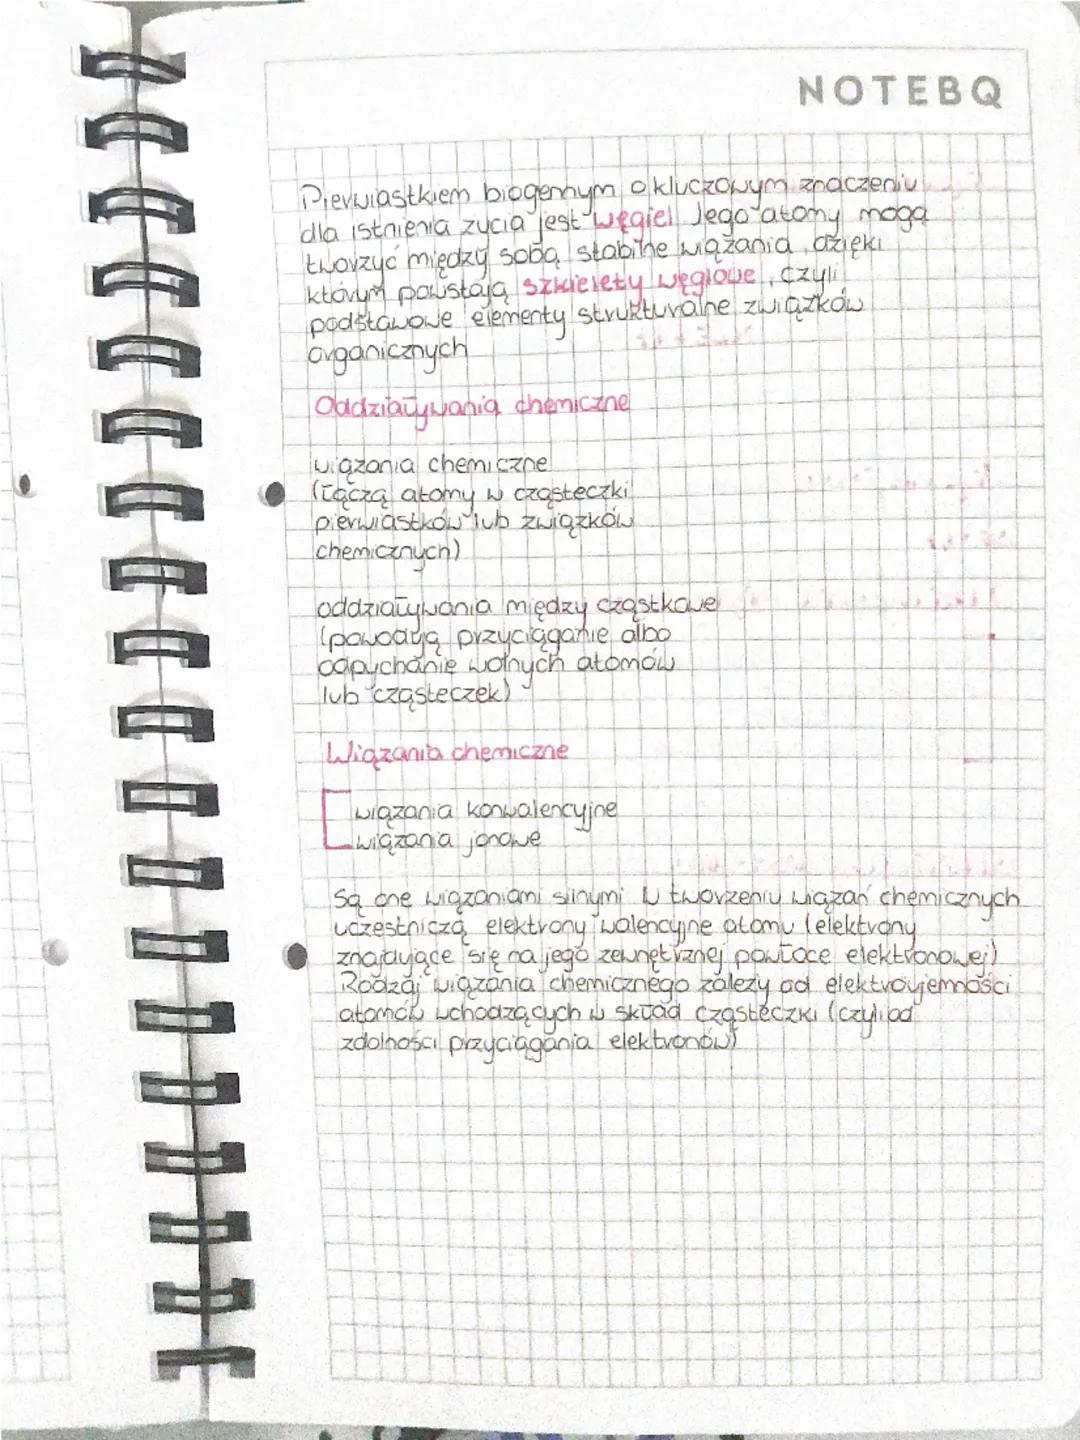 NOTEBQ
Pierwiastkiem biogennym o kluczowym znaczeniu
dla istnienia życia jest węgiel Jego atomy mogą
tworzyć między sobą stabilne wiązania, dzięki
którym powstają szkielety węglowe, czyli
podstawowe elementy strukturalne związków
organicznych
Oddziaływania chemiczne
wiązania chemiczne
(łączą atomy w cząsteczki
pierwiastków lub związków
chemicznych)
oddziaływania między cząstkowe
(powodują przyciąganie albo
odpychanie wolnych atomów
lub cząsteczek)
Wiązania chemiczne
wiązania konwalencyjne
wiązania jonowe
Są one wiązaniami silnymi W tworzeniu wiązań chemicznych
uczestniczą elektrony walencyjne atomu (elektrony
znajdujące się na jego zewnętrznej powłoce elektronowej)
Rodzaj wiązania chemicznego zależy od elektroujemności
atomów wchodzących w skład cząsteczki (czyli od
zdolności przyciągania elektronów)